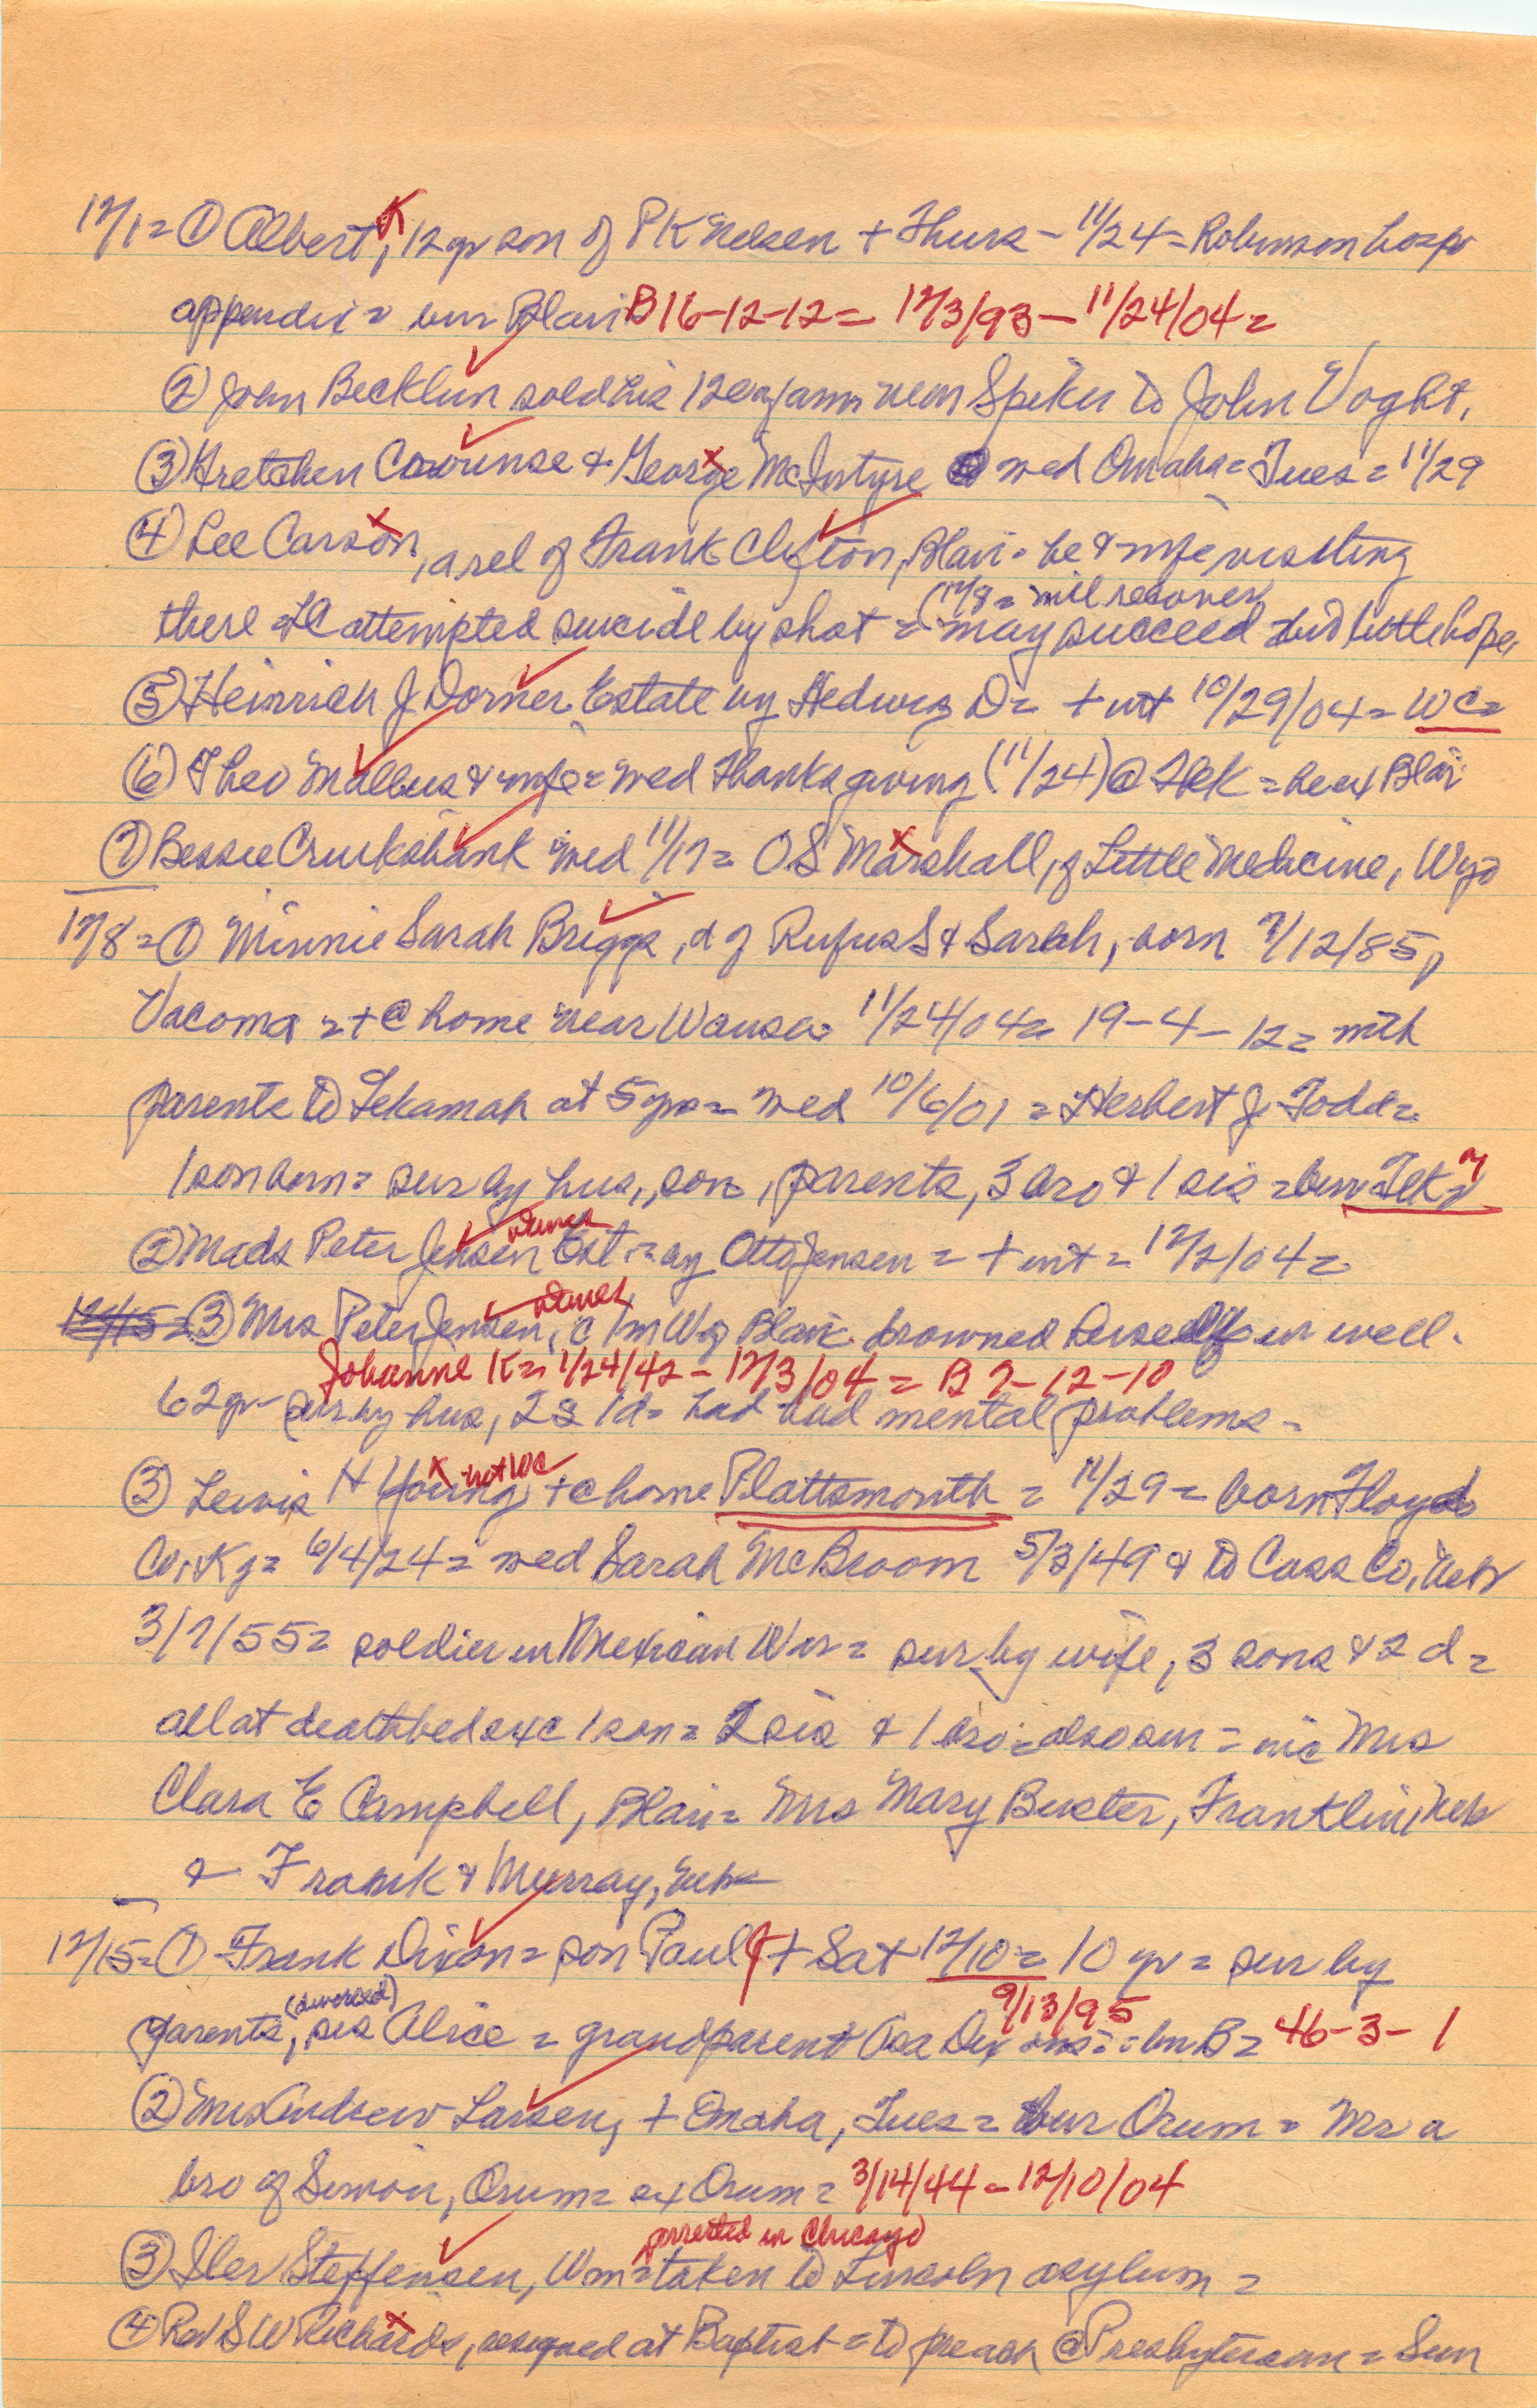 12/1 = ① Albert K, 12 yr son of P K Nelsen + Thurs - 11/24 = Robinson hosp
appendix = bur Blair B 16-12-12 = 12/3/93 - 11/24/04 =
② John Becklun sold his 120 a farm near Spiker to John Voght.
③ Gretchen Crounse & George McIntyre wed Omaha = Tues = 11/29
④ Lee Carson, a rel of Frank Clifton, Blair = he & wife visiting
(12/8 = will recover
there = LC attempted suicide by shot = may succeed little hope,
⑤ Heinrich J Dorner Estate by Hedwig D = + int 10/29/04 = WC =
⑥ Theo Mallus & wife = wed Thanksgiving (11/24) @ Tek = he ex Blair
⑦ Bessie Cruikshank wed 11/17 = O S Marshall, of Little Medicine, Wyo
12/8 = ① Minnie Sarah Briggs, d of Rufus S & Sarah, born 7/12/85,
Vacoma = + @ home near Wausa = 11/24/04 = 19-4-12 = with
parents to Tekamah at 5 yrs = wed 10/6/01 = Herbert J Todd =
1 son born = sur by hus, son, parents, 3 bro & 1 sis = bur Tek =
② Mads Peter Jensen Est = by Otto Jensen = + int = 12/2/04 =
③ Mrs Peter Jensen, c 1 m W of Blair drowned herself in well.
Johanne K = 1/24/42 - 12/3/04 = B 7-12-10
62 yr sur by hus, 2 s 1 d = had had mental problems =
③ Lewis H Young not WC + @ home Plattsmouth = 11/29 = born Floyd
Co, Ky = 6/4/24 = wed Sarah McBroom 5/3/49 & to Cass Co, Neb
3/7/55 = soldier in Mexican War = sur by wife, 3 sons & 2 d =
all at deathbed exc 1 son = 2 sis & 1 bro = also sur = inc Mrs
Clara E Campbell, Blair = Mrs Mary Buxter, Franklin, Neb
& Frank & Murray, Neb
12/15 = ① Frank Dixon = son Paul + Sat 12/10 = 10 yr = sur by
(divorced) 9/13/95
parents, sis Alice = grandparent Asa Dixons = bur B = 46-3-1
② Mrs Andrew Larsen, + Omaha, Tues = bur Orum = Mr a
bro of Simon, Orum = ex Orum = 3/14/44 - 12/10/04
arrested in Chicago
③ Iler Steffensen, Wm = taken to Lincoln asylum =
④ Rev S W Richards, resigned at Baptist = to preach @ Presbyterian = Sun